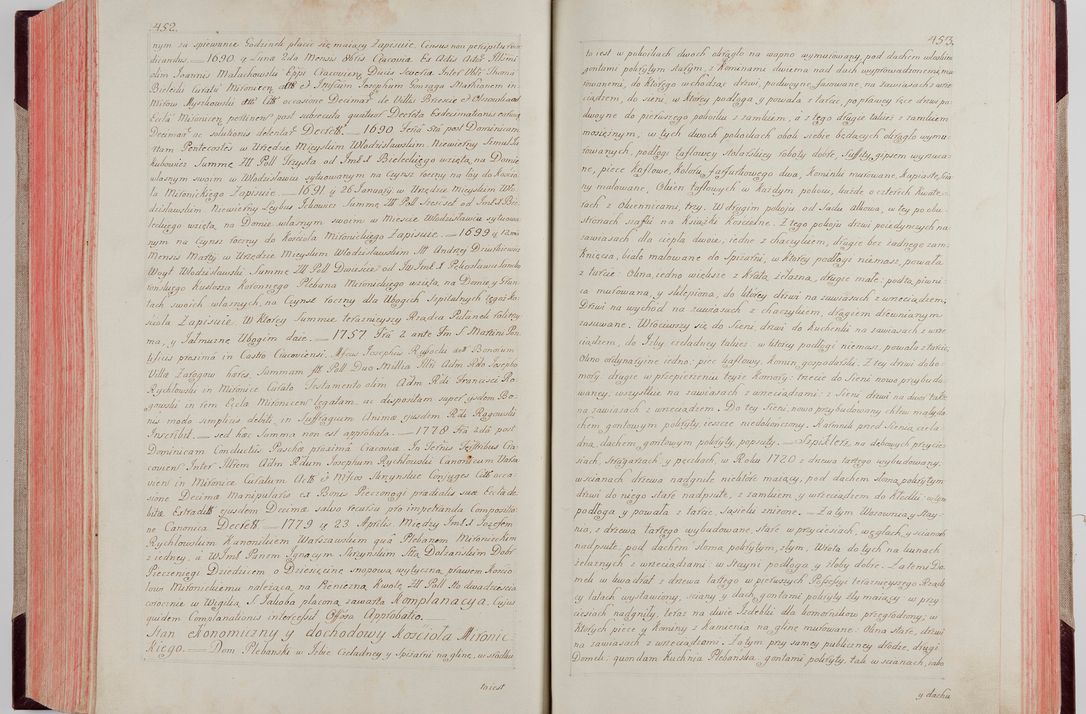 452.
nym za spiewanie Godzinek płacić się maiący Zapisuie. Census non percipitur
dicandus. — 1690 Luna 2da Mensis 8bris Cracoviæ. Ex Actis Actor Illmi
olim Joannis Małachowski Eppi Cracovien Ducis Severiæ Inter Vble Thomā
Bielecki Curatū Mironicen Act et Jllrem Josephum Gonzaga Marchionem in
Mirow Myszkowski occasione Decimar de Villis Brzescie et
Ecclæ Mironicen pertinen post subsecuta quatuor Decreta Exdecimationis
Decimar ac solutionis detentar Decrett. — 1690 Feria 5ta post Dominicam
Pentecostes w Urzędzie Mieyskim Wlodzisławskim. Niewierny Szmul Ja
kubowicz Summę Zll Poll Trzysta od Jmć X Bieleckiego wziętą, na Domie
własnym swoim w Włodzisławiu sytuowanym na Czynsz roczny na łóy do Kościo
ła Mironickiego Zapisuie. — 1691 y 26 January w Urzędzie Mieyskim Wło
dzisławskim Niewierny Leybus Ickowicz Summę Zll Poll Szescset od Jmć X Bie
leckiego wziętą, na Domie własnym swoim w Miescie Włodzisławiu sytuowa
nym na Czynsz roczny do Kościoła Mironickiego Zapisuie. — 1699
Mensis Marty w Urzędzie Mieyskim Włodzisławskim Andrzey Dziutkiewicz
Woyt Włodzisławski Summę Zll Poll Dwiescie od Jmć X
Kustosza Koronnego Plebana Mironickiego wziętą, na Domie y Grun
tach swoich własnych, na Czynsz roczny dla Ubogich Szpitalnych tegoż Ko
scioła Zapisuie. W ktorey Summie teraznieyszy Rządca Pulanek
ma, y Jałmużnę Ubogim daie. — 1757 Fria 2 ante Fm S. Martini Pon
tificis proxima in Castro Cracoviensi. Josephus Russocki Bonorum
Villa Zarogow hæres. Summam Poll Duo Millia Illri Adm Rdo Josepho
Rychłowski in Mironice Curato Testamento olim Adm Rdi Francisci Ro
gowski in rem Eccla Mironicen legatam, ac dispositam super ijsdem Bo
nis modo simplicis debiti in Suffragium Animæ ejusdem Rdi Rogowski
Inscribit. — sed hæc Summa non est approbata. — 1778 Fria 2da post
Dominicam Conductus Paschæ proxima Cracoviæ. In Terris Terribus Cra
covien Inter Illrem Adm Rdum Josephum Rychłowski Canonicum Varsa
vien in Mironice Curatum Act et Mfcos Skrzynskie Conjuges Citt occa
sione Decimæ Manipularis ex Bonis Pieczonogi prædialis suæ Eccla de
bitæ Extraditt ejusdem Decimæ salvo recursu pro impetranda Compositio
ne Canonica Decrett. — 1779 y 23 Aprilis. Między Jmć X Jozefem
Rychłowskim Kanonikiem Warszawskim qua Plebanem Mironickim
z iedney, a WJmć Panem Ignacym Skrzynskim Dobr
Pieczeniegi Dziedzicem o Dziesięcinę snopową, wytyczną, prawem Kościo
łowi Mironickiemu nalezącą na Pieniezną Kwotę Zll Poll Sto dwadziescia
corocznie w Wigilią S Jakoba płaconą, zawarta Komplanacya. Cujus
quidem Complanationis intercessit Officiosa Approbatio.
Stan ekonomiczny y dochodowy Kościoła Mironic
kiego. — Dom Plebański w Izbie Czeladney y Spizarni na glinę, w srodku
to iest
453.
to iest w pokoikach dwoch okrągło na wapno wymurowany, pod dachem w
gontami pokrytym starym, z Kominami dwiema nad dach wyprowadzonemi, mu
rowanemi, do którego wchodząc drzwi podwoyne fasowane, na zawiasach y wrze
ciądzem, do sieni, w ktorey podłoga y powała z tarcic, po prawey ręce drzwi po
dwoyne do pierwszego pokoiku z zamkiem, a z tego drugie także z zamkiem
mosięznym, w tych dwoch pokoikach obok siebie będących okrągło wymu
rowanych, podłogi taflowey stolarskiey roboty dobre, Suffity gipsem wyrzuca
ne, piece kaflowe, koloru farfurkowego dwa, Kominki murowane, kapiaste, ścia
ny malowane, Okien taflowych w kazdym pokoiu, kazde o czterech kwate
rach z Okiennicami, trzy. W drugim pokoiu od Sadu alkowa, w tey po obu
stronach szafki na Książki Kościelne. Z tego pokoiu drzwi poiedynczych na
zawiasach dla ciepła dwoie, iedne z haczykiem, drugie bez zadnego zam
knięcia, biało malowane do Spizarni, w ktorey podłogi niemasz, powała
z tarcic: Okna, iedno większe z kratą zelazną, drugie małe: pod tą piwni
ca murowana, y sklepiona, do ktorey drzwi na zawiasach z wrzeciądzem:
Drzwi na wychod na zawiasach z haczykiem, drągiem drewnianym
zasuwane. Wrociwszy się do Sieni, drzwi do kuchenki na zawiasach z wrze
ciądzem, do Izby czeladney także: w ktorey podłogi niemasz, powała z tarcic,
Okno ordynaryine iedno: piec kaflowy, komin gospodarski. Z tey drzwi do ko
mory drugie w przepierzeniu teyże komory: trzecie do Sieni nowo przybudo
waney, wszystkie na zawiasach z wrzeciądzami: z Sieni drzwi na dwor także
na zawiasach z wrzeciądzem. Do tey Sieni, nowo przybudowany chlew mały da
chem gontowym pokryty, ieszcze niedokonczony. Karmnik przed Sienią czela
dną, dachem gontowym pokryty, popsuty. — Szpiklerz na dębowych przycie
siach, sfugarzach y peckach, w Roku 1720 z drzewa tartego wybudowany:
w ścianach drzewa nadgniłe niektore maiący, pod dachem słomą pokrytym,
drzwi do niego stare nadpsute, z zamkiem, y wrzeciądzem do Kłodki: w tym
podłoga y powała z tarcic, Sąsieki znisne. — Za tym Wozownia, y Stay
nia, z drzewa tartego wybudowane, stare w przyciesiach, węgłach, y scianach
nadpsute, pod dachem słomą pokrytym, złym, Wrota do tych na biunach
żelaznych z wrzeciądzami: w Stayni podłoga, y złoby dobre. Za temi Do
mek w kwadrat z drzewa tartego w pierwszych teraznieyszego Rząd
cy latach wystawiony, ściany y dach gontami pokryty zły maiący, w przy
ciesiach nadgniły, teraz na dwie Izdebki dla komornikow przegrodzony, w
ktorych piece y kominy z kamienia na glinę murowane. Okna stare, drzwi
na zawiasach z wrzeciądzami. Za tym, przy samey publiczney drodze, drugi
Domek, quondam kuchnia Plebańska, gontami pokryty, tak w scianach, iako
y dachu